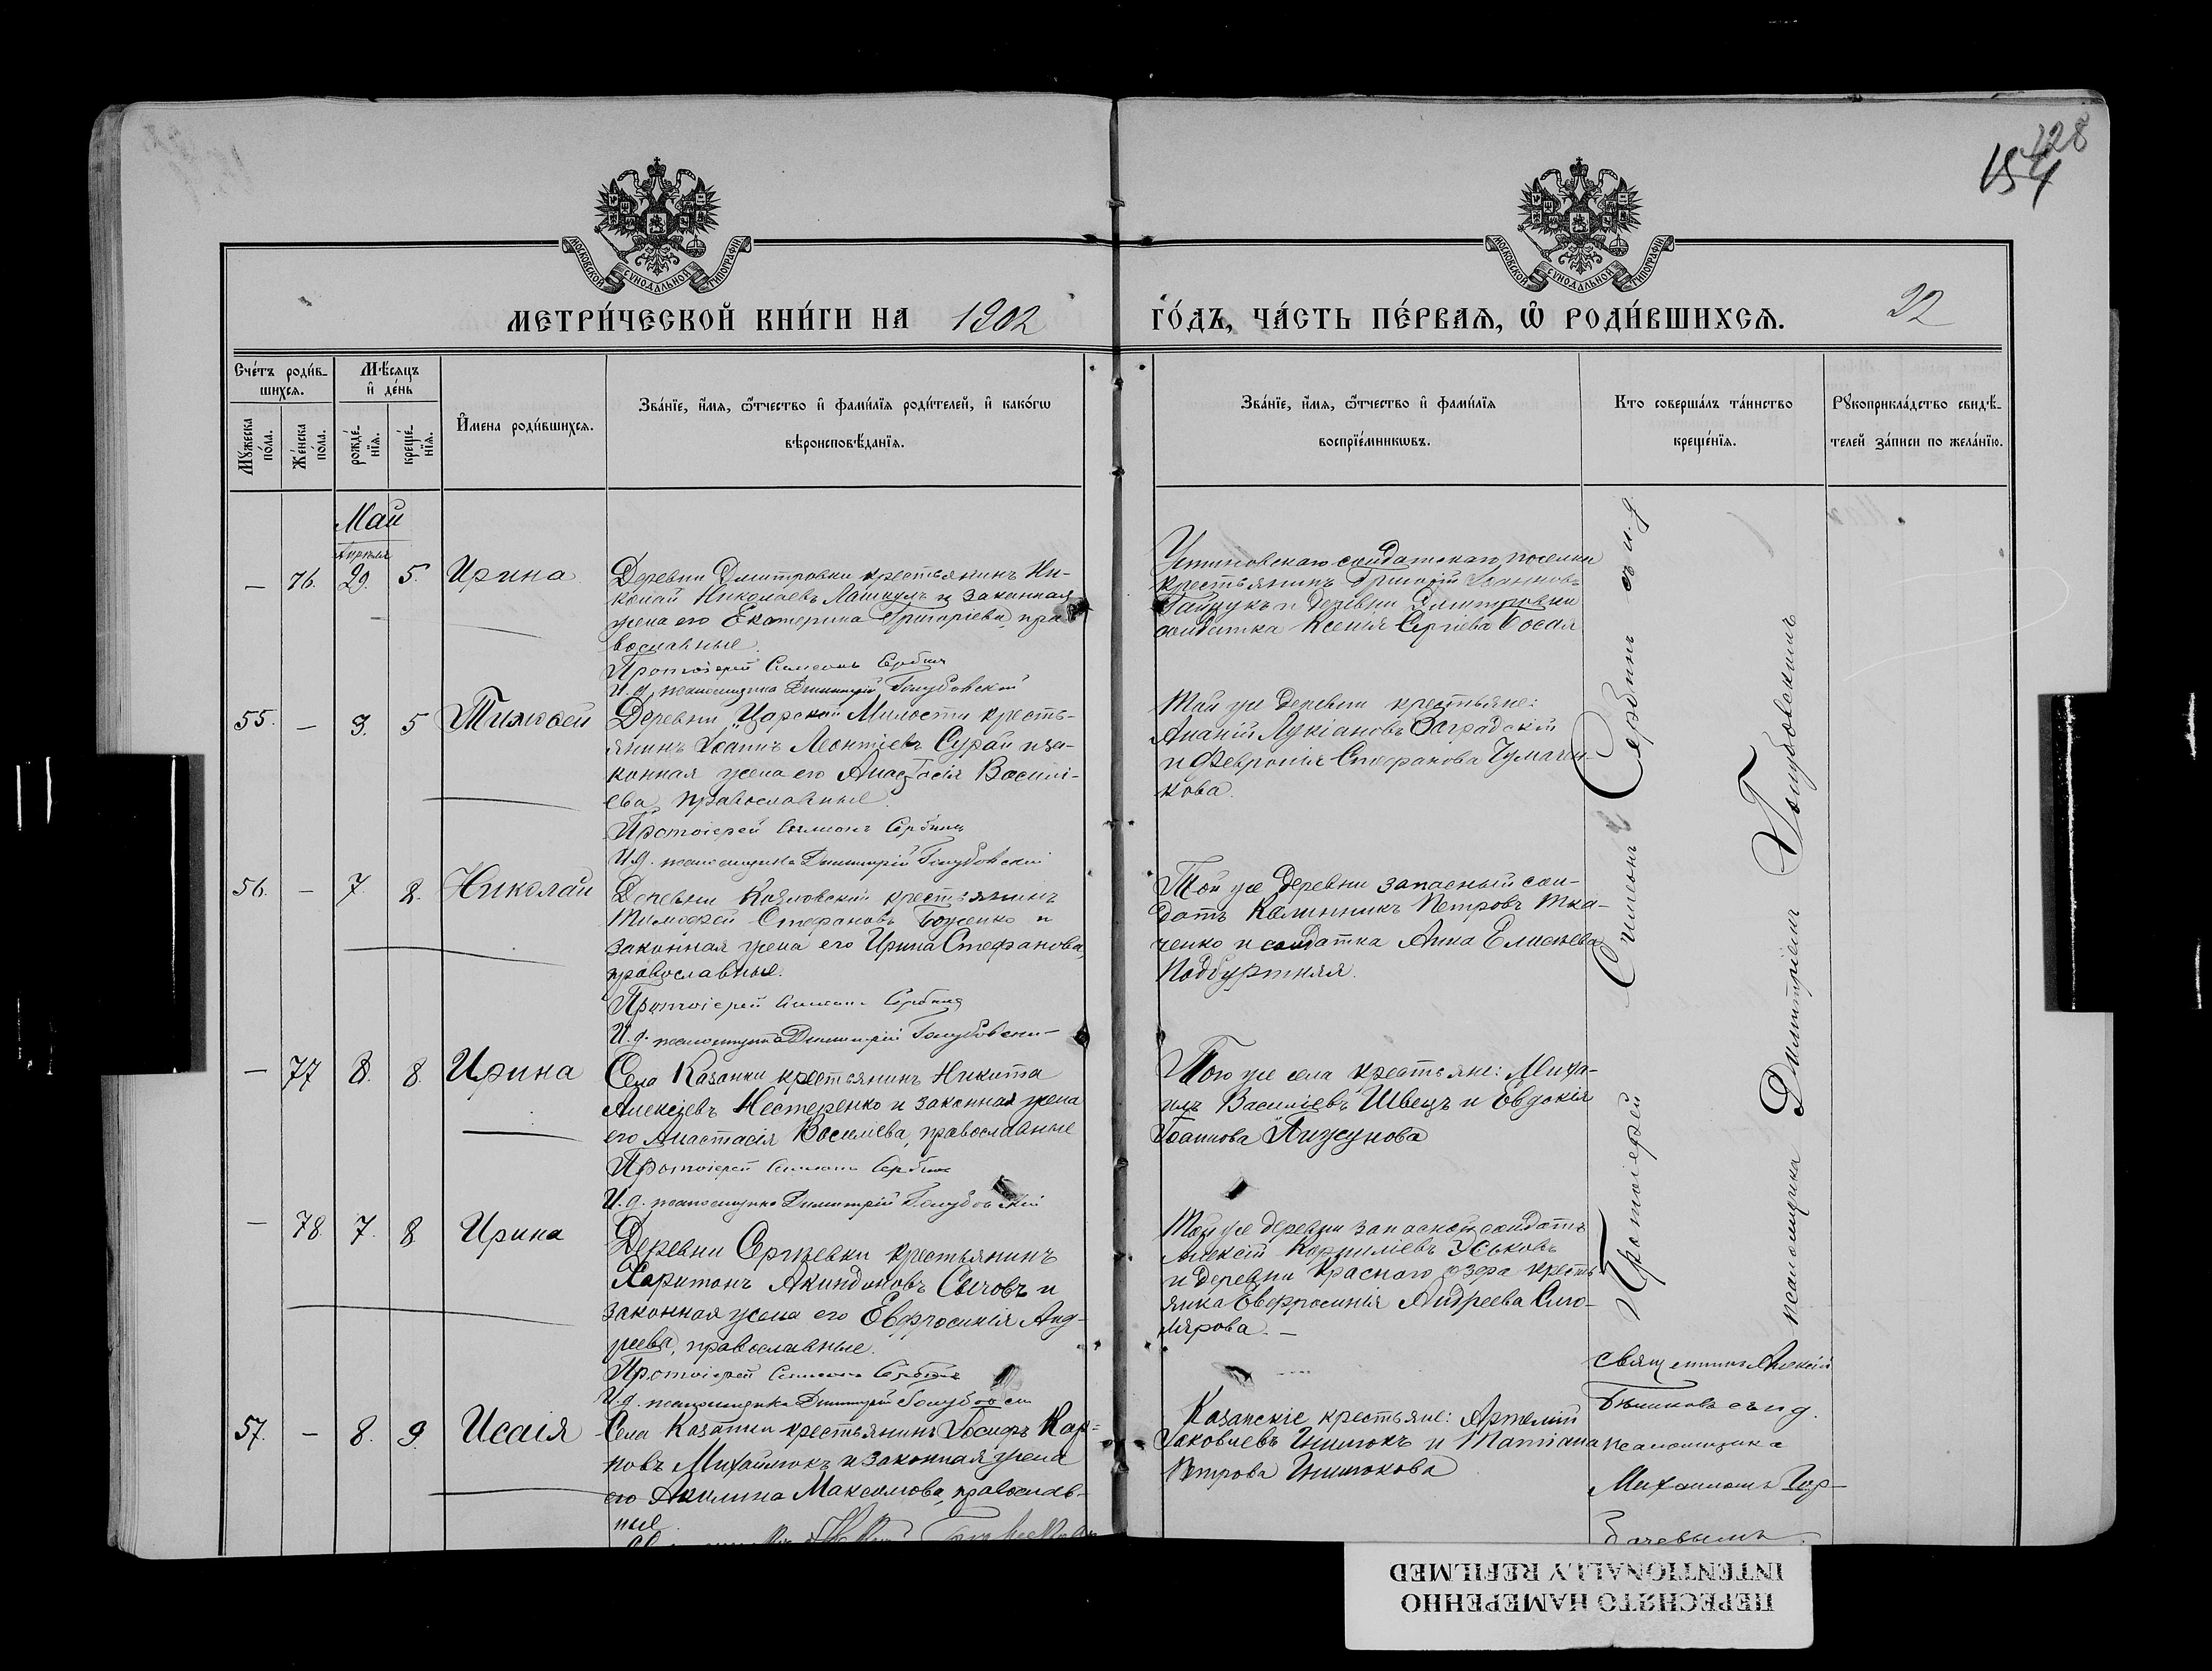 128
154
МОСКОВСКОЙ СѴНОДАЛЬНОЙ ТИПОГРАФІИ
МОСКОВСКОЙ СѴНОДАЛЬНОЙ ТИПОГРАФІИ
МЕТРИ́ЧЕСКОЙ КНИ́ГИ НА 1902 ГО́ДЪ, ЧА́СТЬ ПЕ́РВАѦ, Ѡ҆ РОДИ́ВШИХСѦ.
22
Сче́тъ роди́в-
шихсѧ.
Мꙋжеска по́ла.
Же́нска по́ла.
Мѣ́сѧцъ
и҆ де́нь
рожде́-
нїѧ.
креще́-
нїѧ.
И҆мена роди́вшихсѧ.
Зва́нїе, и҆́мѧ, ѻ҆́тчество и҆ фами́лїѧ роди́телей, и҆ како́гѡ
вѣроисповѣ́данїѧ.
Зва́нїе, и҆́мѧ, ѻ҆́тчество и҆ фами́лїѧ
воспрїе́мникѡвъ.
Кто соверша́лъ та́инство
креще́нїѧ.
Рꙋкоприкла́дство свидѣ́-
телей за́писи по жела́нїю.
Май
Апрѣля
— 76. 29. 5. Ирина
Деревни Дмитровки крестьянинъ Ни-
колай Николаевъ Лашкулъ и законная
жена его Екатерина Григоріева, пра
вославные.
Протоіерей Симеонъ Сербинъ
И.д. псаломщика Димитрій Голубовскій
крестьянинъ Григорій Іоанновъ
Гайдукъ и деревни Дмитровки
солдатка Ксенія Сергіева
55. — 3. 5 Тимофей
Деревни Царской Милости кресть-
янинъ Іоаннъ Леонтіевъ Сурай и за-
конная жена его Анастасія Василі-
ева, православные.
Протоіерей Симеонъ Сербинъ
И.д. псаломщика Димитрій Голубовскій
Той же деревни крестьяне:
Ананій Лукіановъ Заградскій
и Февронія Стефанова Чумачен-
кова.
56. — 7. 8. Николай
Деревни крестьянинъ
Тимофей Стефановъ Боженко и
законная жена его Ирина Стефанова,
православные.
Протоіерей Симеонъ Сербинъ
И.д. псаломщика Димитрій Голубовскій
Той же деревни запасный сол-
датъ Калинникъ Петровъ Тка-
ченко и солдатка Анна Елисеева
Подбуртняя.
— 77 8. 8. Ирина
Села Казанки крестьянинъ Никита
Алексѣевъ Нестеренко и законная жена
его Анастасія Василіева, православные
Протоіерей Симеонъ Сербинъ
И.д. псаломщика Димитрій Голубовскій
Того же села крестьяне: Миха-
илъ Василіевъ Швецъ и Евдокія
Іоаннова
— 78. 7. 8. Ирина
Деревни Сергѣевки крестьянинъ
Харитонъ Акиндиновъ Сычовъ и
законная жена его Евфросинія Анд-
реева, православные.
Протоіерей Симеонъ Сербинъ
И.д. псаломщика Димитрій Голубовскій
Той же деревни запасной солдатъ
Алексій Корниліевъ Уськовъ
и деревни Краснаго озера кресть
янка Евфросинія Андреева Сто-
лярова. —
57. — 8. 9. Исаія
Села Казанки крестьянинъ Іосифъ Кар-
повъ Михайлюкъ и законная жена
его Акилина Максимова, православ-
ные.
Казанскіе крестьяне: Артемій
Іаковлевъ и Татіана
Петрова
Протоіерей Симеонъ Сербинъ съ и.д.
псаломщика Димитріемъ Голубовскимъ
Священникъ Алексій
съ и д.
псаломщика
Михаиломъ Гор-
бачевымъ.
ПЕРЕСНЯТО НАМЕРЕННО
INTENTIONALLY REFILMED